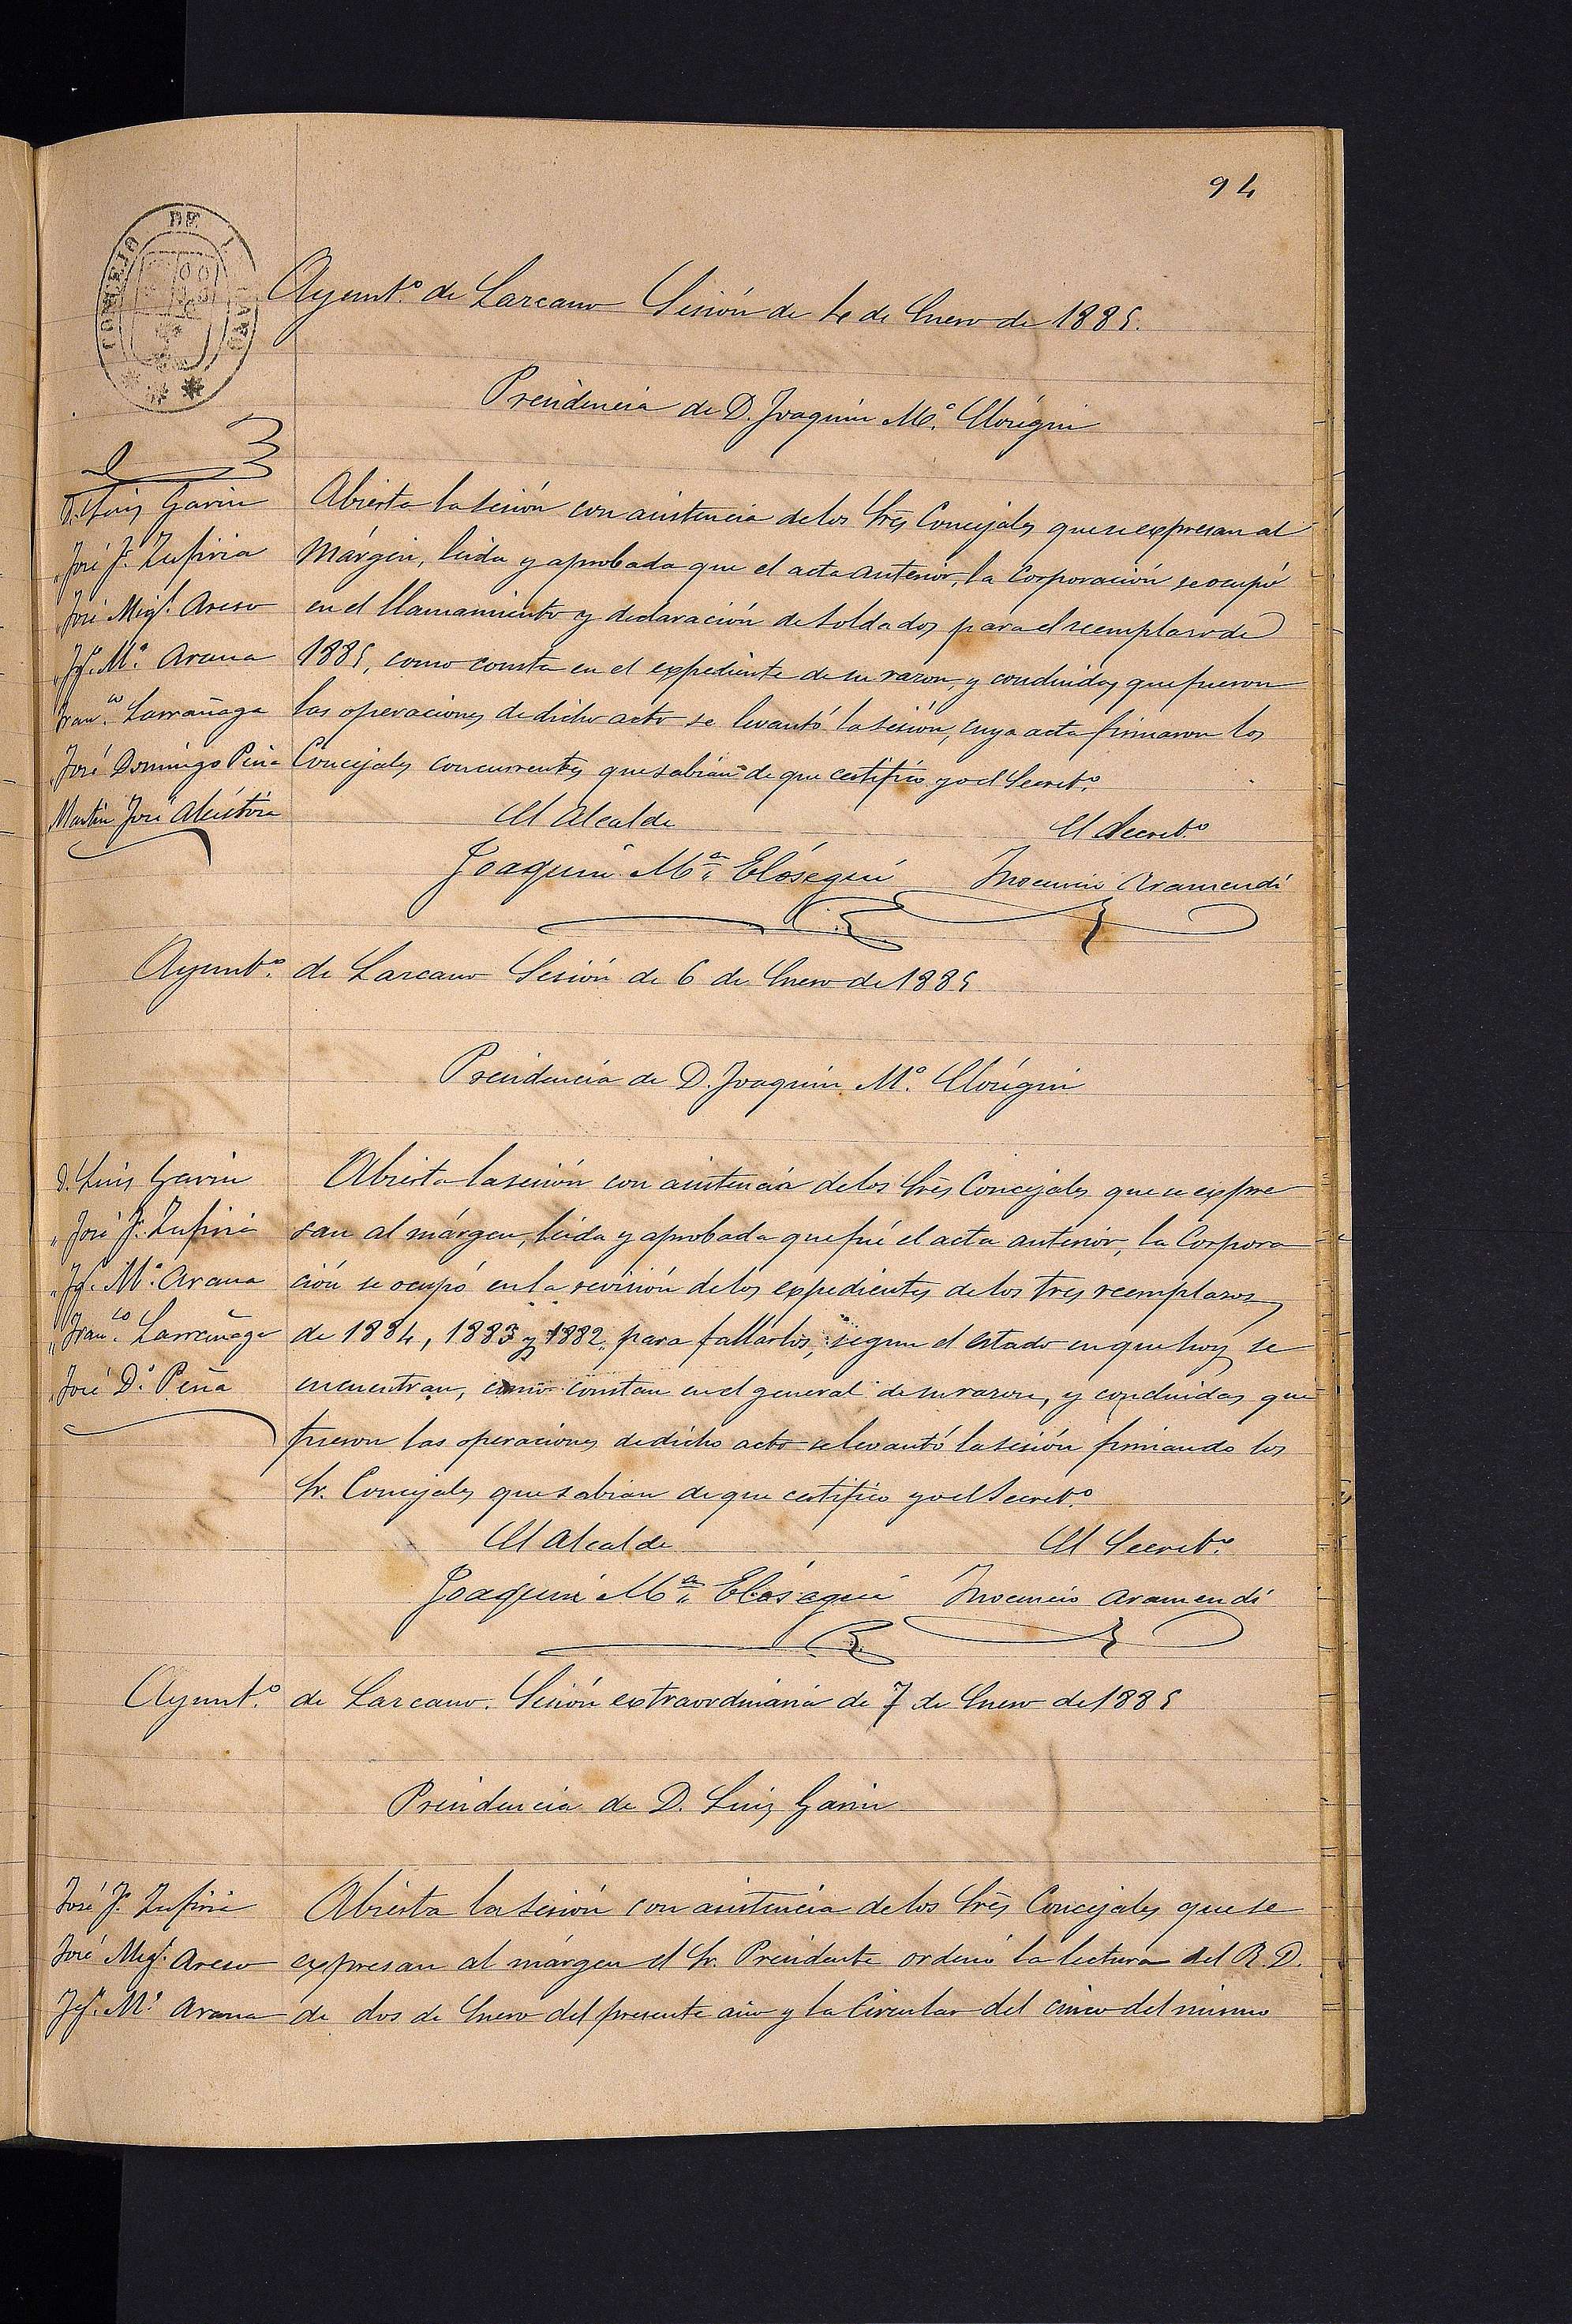 94
CONCEJO DE LAZCANO
Ayunt.º de Lazcano Sesión de 4 de Enero de 1885.
Presidencia de D. Joaquin M.ª Elósegui
D. Luis Garin
" José J.º Zufiria
" José Mig.l Areso
" Jph. M.ª Arana
" Fran.co Larrañaga
" José Domingo Peña
Martin José
Abierta la sesión con asistencia de los Srês Concejales que se expresan al
márgen, leida y aprobada que el acta anterior, la Corporación se ocupó
en el llamamiento y declaración de soldados para el reemplaso de
1885, como consta en el expediente de su razon, y concluidas que fueron
las operaciones de dicho acto se levantó la sesión, cuya acta firmaron los
Concejales concurrentes que sabian de que certifico yo el Secret.º
El Alcalde El Secret.º
Joaquin M.ª Elósegui Inocencio Aramendi
Ayunt.º de Lazcano Sesión de 6 de Enero de 1885
Presidencia de D. Joaquin M.ª Elósegui
D. Luis Garin
" José J.º Zufiria
" Jph. M.ª Arana
" Fran.co Larrañaga
" José D.º Peña
Abierta la sesión con asistencia de los Srês Concejales que se expre
san al márgen, leida y aprobada que fué el acta anterior, la Corpora
ción se ocupó en la revisión de los expedientes de los tres reemplasos
de 1884, 1883 y 1882, para fallarlos, segun el estado en que hoy se
encuentran, como constan en el general de su razon, y concluidas que
fueron las operaciones de dicho acto se levantó la sesión firmando los
Sr. Concejales que sabian de que certifico yo el Secret.º
El Alcalde El Secret.º
Joaquin M.ª Elósegui Inocencio Aramendi
Ayunt.º de Lazcano. Sesión extraordinaria de 7 de Enero de 1885
Presidencia de D. Luis Garin
José J.º Zufiria
José Mig.l Areso
Jph. M.ª Arana
Abierta la sesión con asistencia de los Srês Concejales que se
expresan al márgen el Sr. Presidente ordenó la lectura del R. D.
de dos de Enero del presente año y la Circular del cinco del mismo